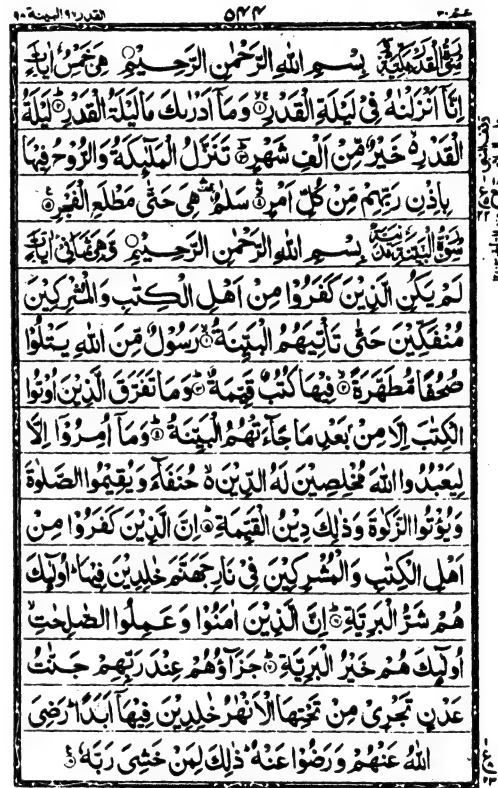 القدر ٩٧ البينة ٩٨ ٥٤٤ عم ٣٠
سورة القدر مكية بِسْمِ اللهِ الرَّحْمٰنِ الرَّحِيْمِ هِيَ خَمْسُ اٰيَاتٍ
اِنَّآ اَنْزَلْنٰهُ فِيْ لَيْلَةِ الْقَدْرِ ۝١ وَمَآ اَدْرٰىكَ مَا لَيْلَةُ الْقَدْرِ ۝٢ لَيْلَةُ
الْقَدْرِ ەۙ خَيْرٌ مِّنْ اَلْفِ شَهْرٍ ۝٣ تَنَزَّلُ الْمَلٰٓئِكَةُ وَالرُّوْحُ فِيْهَا
بِاِذْنِ رَبِّهِمْ مِّنْ كُلِّ اَمْرٍ ۝٤ سَلٰمٌ ۛ هِيَ حَتّٰى مَطْلَعِ الْفَجْرِ ۝٥
سورة البينة مدنية بِسْمِ اللهِ الرَّحْمٰنِ الرَّحِيْمِ وَهِيَ ثَمَانِيْ اٰيَاتٍ
لَمْ يَكُنِ الَّذِيْنَ كَفَرُوْا مِنْ اَهْلِ الْكِتٰبِ وَالْمُشْرِكِيْنَ
مُنْفَكِّيْنَ حَتّٰى تَاْتِيَهُمُ الْبَيِّنَةُ ۝١ رَسُوْلٌ مِّنَ اللهِ يَتْلُوْا
صُحُفًا مُّطَهَّرَةً ۝٢ فِيْهَا كُتُبٌ قَيِّمَةٌ ۝٣ وَمَا تَفَرَّقَ الَّذِيْنَ اُوْتُوا
الْكِتٰبَ اِلَّا مِنْۢ بَعْدِ مَا جَآءَتْهُمُ الْبَيِّنَةُ ۝٤ وَمَآ اُمِرُوْٓا اِلَّا
لِيَعْبُدُوا اللهَ مُخْلِصِيْنَ لَهُ الدِّيْنَ ەۙ حُنَفَآءَ وَيُقِيْمُوا الصَّلٰوةَ
وَيُؤْتُوا الزَّكٰوةَ وَذٰلِكَ دِيْنُ الْقَيِّمَةِ ۝٥ اِنَّ الَّذِيْنَ كَفَرُوْا مِنْ
اَهْلِ الْكِتٰبِ وَالْمُشْرِكِيْنَ فِيْ نَارِ جَهَنَّمَ خٰلِدِيْنَ فِيْهَا ؕ اُولٰٓئِكَ
هُمْ شَرُّ الْبَرِيَّةِ ۝٦ اِنَّ الَّذِيْنَ اٰمَنُوْا وَعَمِلُوا الصّٰلِحٰتِ ۙ
اُولٰٓئِكَ هُمْ خَيْرُ الْبَرِيَّةِ ۝٧ جَزَآؤُهُمْ عِنْدَ رَبِّهِمْ جَنّٰتُ
عَدْنٍ تَجْرِيْ مِنْ تَحْتِهَا الْاَنْهٰرُ خٰلِدِيْنَ فِيْهَآ اَبَدًا ؕ رَضِيَ
اللهُ عَنْهُمْ وَرَضُوْا عَنْهُ ؕ ذٰلِكَ لِمَنْ خَشِيَ رَبَّهٗ ۝٨